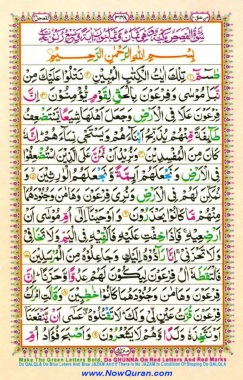 بِسْمِ اللهِ الرَّحْمٰنِ الرَّحِيْمِ
طٰسٓمّٓ ۝ تِلْكَ اٰيٰتُ الْكِتٰبِ الْمُبِيْنِ ۝ نَتْلُوْا عَلَيْكَ مِنْ
نَّبَاِ مُوْسٰى وَفِرْعَوْنَ بِالْحَقِّ لِقَوْمٍ يُّؤْمِنُوْنَ ۝ اِنَّ
فِرْعَوْنَ عَلَا فِى الْاَرْضِ وَجَعَلَ اَهْلَهَا شِيَعًا يَّسْتَضْعِفُ
طَآئِفَةً مِّنْهُمْ يُذَبِّحُ اَبْنَآءَهُمْ وَيَسْتَحْيٖ نِسَآءَهُمْ اِنَّهٗ
كَانَ مِنَ الْمُفْسِدِيْنَ ۝ وَنُرِيْدُ اَنْ نَّمُنَّ عَلَى الَّذِيْنَ اسْتُضْعِفُوْا
فِى الْاَرْضِ وَنَجْعَلَهُمْ اَئِمَّةً وَّنَجْعَلَهُمُ الْوٰرِثِيْنَ ۝ وَ
نُمَكِّنَ لَهُمْ فِى الْاَرْضِ وَنُرِىَ فِرْعَوْنَ وَهَامٰنَ وَجُنُوْدَهُمَا
مِنْهُمْ مَّا كَانُوْا يَحْذَرُوْنَ ۝ وَاَوْحَيْنَآ اِلٰٓى اُمِّ مُوْسٰٓى اَنْ
اَرْضِعِيْهِ فَاِذَا خِفْتِ عَلَيْهِ فَاَلْقِيْهِ فِى الْيَمِّ وَلَا تَخَافِىْ
وَلَا تَحْزَنِىْ اِنَّا رَآدُّوْهُ اِلَيْكِ وَجَاعِلُوْهُ مِنَ الْمُرْسَلِيْنَ ۝
فَالْتَقَطَهٗٓ اٰلُ فِرْعَوْنَ لِيَكُوْنَ لَهُمْ عَدُوًّا وَّحَزَنًا اِنَّ
فِرْعَوْنَ وَهَامٰنَ وَجُنُوْدَهُمَا كَانُوْا خٰطِـِٕيْنَ ۝ وَقَالَتِ امْرَاَتُ
فِرْعَوْنَ قُرَّتُ عَيْنٍ لِّىْ وَلَكَ لَا تَقْتُلُوْهُ عَسٰٓى اَنْ يَّنْفَعَنَآ
اَوْ نَتَّخِذَهٗ وَلَدًا وَّهُمْ لَا يَشْعُرُوْنَ ۝ وَاَصْبَحَ فُؤَادُ اُمِّ
Make The Green Letters Bold, Do GHUNNA On Red Letters And Red Marks
www.NowQuran.com